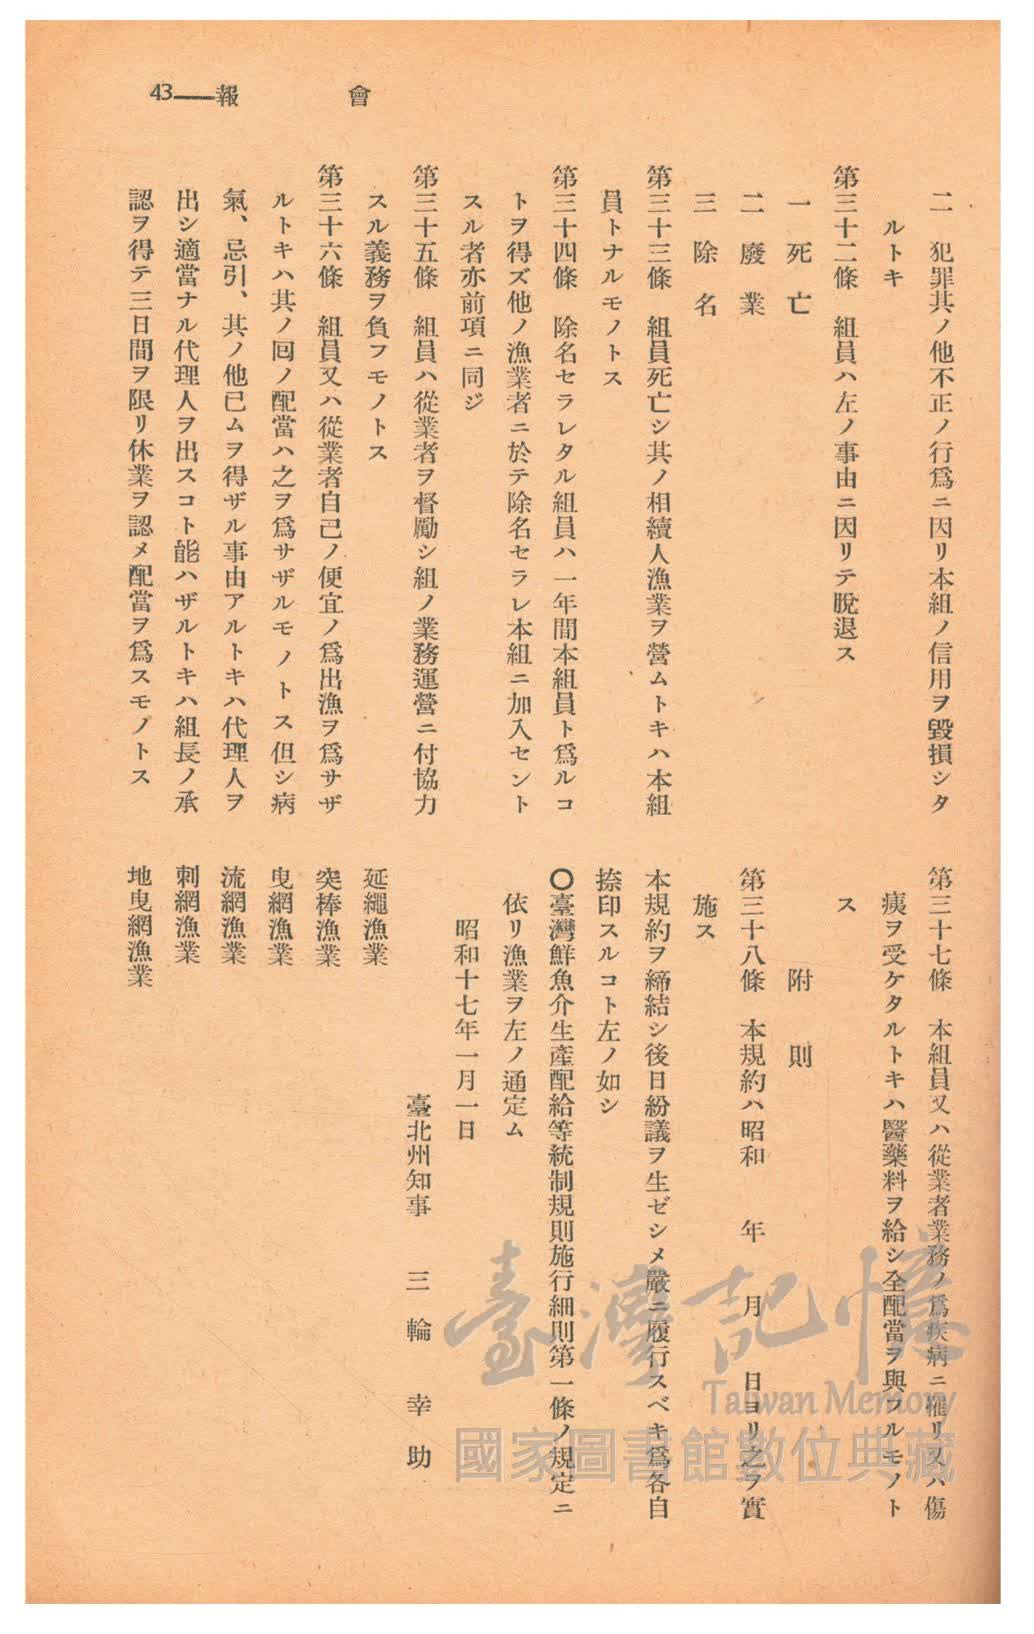 43——報　會
二　犯罪其ノ他不正ノ行爲ニ因リ本組ノ信用ヲ毀損シタ
ルトキ
第三十二條　組員ハ左ノ事由ニ因リテ脫退ス
一　死　亡
二　廢　業
三　除　名
第三十三條　組員死亡シ其ノ相續人漁業ヲ營ムトキハ本組
員トナルモノトス
第三十四條　除名セラレタル組員ハ一年間本組員ト爲ルコ
トヲ得ズ他ノ漁業者ニ於テ除名セラレ本組ニ加入セント
スル者亦前項ニ同ジ
第三十五條　組員ハ從業者ヲ督勵シ組ノ業務運營ニ付協力
スル義務ヲ負フモノトス
第三十六條　組員又ハ從業者自己ノ便宜ノ爲出漁ヲ爲サザ
ルトキハ其ノ囘ノ配當ハ之ヲ爲サザルモノトス但シ病
氣、忌引、其ノ他已ムヲ得ザル事由アルトキハ代理人ヲ
出シ適當ナル代理人ヲ出スコト能ハザルトキハ組長ノ承
認ヲ得テ三日間ヲ限リ休業ヲ認メ配當ヲ爲スモノトス
第三十七條　本組員又ハ從業者業務ノ爲疾病ニ罹リ又ハ傷
痍ヲ受ケタルトキハ醫藥料ヲ給シ全配當ヲ與フルモノト
ス
附　則
第三十八條　本規約ハ昭和　年　月　日ヨリ之ヲ實
施ス
本規約ヲ締結シ後日紛議ヲ生ゼシメ嚴ニ履行スベキ爲各自
捺印スルコト左ノ如シ
〇臺灣鮮魚介生產配給等統制規則施行細則第一條ノ規定ニ
依リ漁業ヲ左ノ通定ム
昭和十七年一月一日
臺北州知事　三　輪　幸　助
延繩漁業
突棒漁業
曳網漁業
流網漁業
刺網漁業
地曳網漁業
臺灣記憶
Taiwan Memory
國家圖書館數位典藏